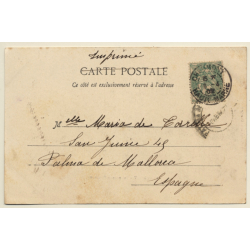 Imprimé
CARTE POSTALE
Ce côté est exclusivement réservé à l'adresse
Maria de
San Jaime 45
Palma de Mallorca
Espagne